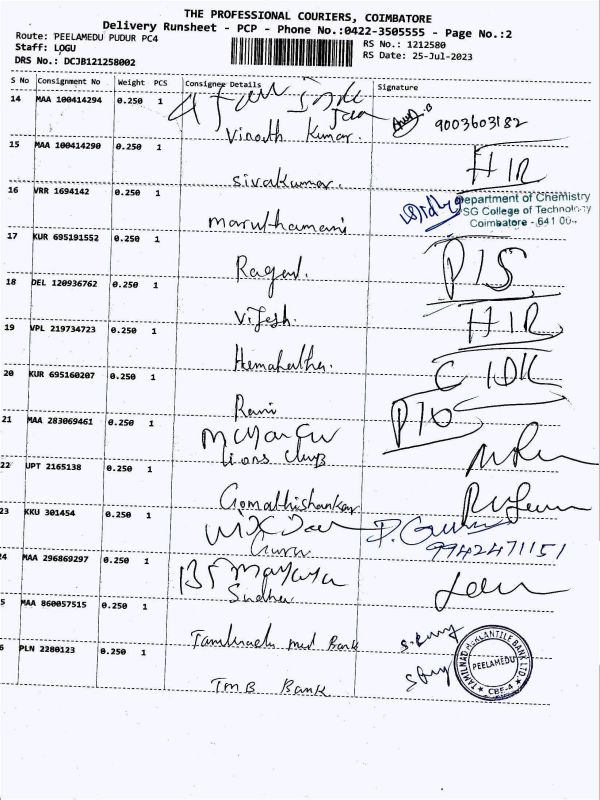 THE PROFESSIONAL COURIERS, COIMBATORE
Delivery Runsheet - PCP - Phone No.:0422-3505555 - Page No.:2
Route: PEELAMEDU PUDUR PC4
RS No.: 1212580
Staff: LOGU
RS Date: 25-Jul-2023
DRS No.: DCJB121258002
S No Consignment No Weight PCS Consignee Details Signature
14 MAA 100414294 0.250 1
Vinoth Kumar. 9003603182
15 MAA 100414290 0.250 1
Sivakumar. HIR
16 VRR 1694142 0.250 1
Department of Chemistry
PSG College of Technology
Coimbatore - 641 00
maruthamani
17 KUR 695191552 0.250 1
Ragavi. PIS
18 DEL 120936762 0.250 1
Vijesh. HIR
19 VPL 219734723 0.250 1
Hemalatha.
20 KUR 695160207 0.250 1
Rani
21 MAA 283069461 0.250 1
Lions Club
22 UPT 2165138 0.250 1
Gomathishankar
23 KKU 301454 0.250 1
Guru 9942471151
24 MAA 296869297 0.250 1
Sudha
5 MAA 860057515 0.250 1
Tamilnadu med Bank
6 PLN 2280123 0.250 1
TMB Bank
TAMILNAD MERCANTILE BANK LTD.
PEELAMEDU
CBE-4